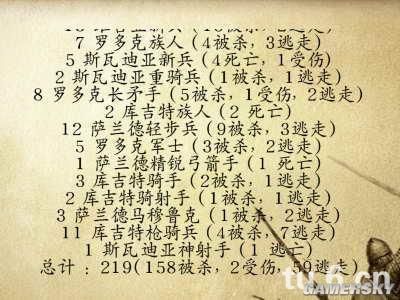 7 罗多克族人（4被杀，3逃走）
5 斯瓦迪亚新兵（4死亡，1受伤）
2 斯瓦迪亚重骑兵（1被杀，1逃走）
8 罗多克长矛手（5被杀，1受伤，2逃走）
2 库吉特族人（2 死亡）
12 萨兰德轻步兵（9被杀，3逃走）
5 罗多克军士（3被杀，2逃走）
1 萨兰德精锐弓箭手（1 死亡）
3 库吉特骑手（2被杀，1逃走）
2 库吉特骑射手（1被杀，1逃走）
3 萨兰德马穆鲁克（1被杀，2逃走）
11 库吉特枪骑兵（4被杀，7逃走）
1 斯瓦迪亚神射手（1 逃亡）
总计：219(158被杀，2受伤，59逃走)
GAMERSKY